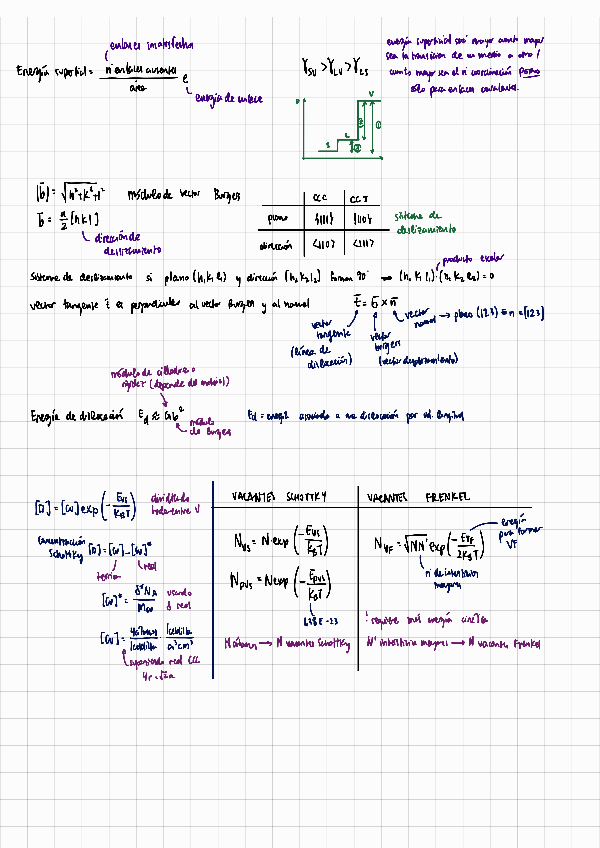 enlaces insatisfechos
Energía superficial = nº enlaces ausentes / área · e
energía de enlace
γSV > γLV > γLS
energía superficial será mayor cuanto mayor
sea la transición de un medio a otro /
cuanto mayor sea el nº coordinación
sólo para enlaces covalentes.
V
L
S
|b̄| = √h²+k²+l² módulo de vector Burgers
b̄ = a/2 [h k l]
dirección de
deslizamiento
CCC CCI
plano {111} {110}
dirección <110> <111>
sistema de
deslizamiento
producto escalar
Sistema de deslizamiento si plano (h₁ k₁ l₁) y dirección [h₂ k₂ l₂] forman 90° → (h₁ k₁ l₁)·(h₂ k₂ l₂) = 0
vector tangente t̄ es perpendicular al vector Burgers y al normal
t̄ = b̄ × n̄
vector normal → plano (123) n = [123]
vector
tangente
(línea de
dislocación)
vector
burgers
(vector desplazamiento)
módulo de cizalla o
rigidez (depende del material)
Energía de dislocación Ed ≈ Gb²
módulo
de Burgers
Ed = energía asociada a una dislocación por ud. longitud
[□] = [CV] exp (-EVS / KBT)
dividiendo
todo entre V
concentración
Schottky [□] = [CV] - [CV]*
teórica
real
[CV]* = δ* NA / MCV
usando
δ real
[CV] = 4 átomos / 1 celdilla · 1 celdilla / a³ cm³
CCC
4r = √2 a
VACANTES SCHOTTKY
NVS = N·exp (-EVS / KBT)
NDVS = N exp (-EDVS / KBT)
1,38 E-23
N átomos → N vacantes Schottky
VACANTES FRENKEL
NVF = √NN' exp (-EVF / 2KBT)
energía
para formar
VF
nº de intersticios
mayores
requiere más energía cinética
N' intersticios mayores → N vacantes Frenkel